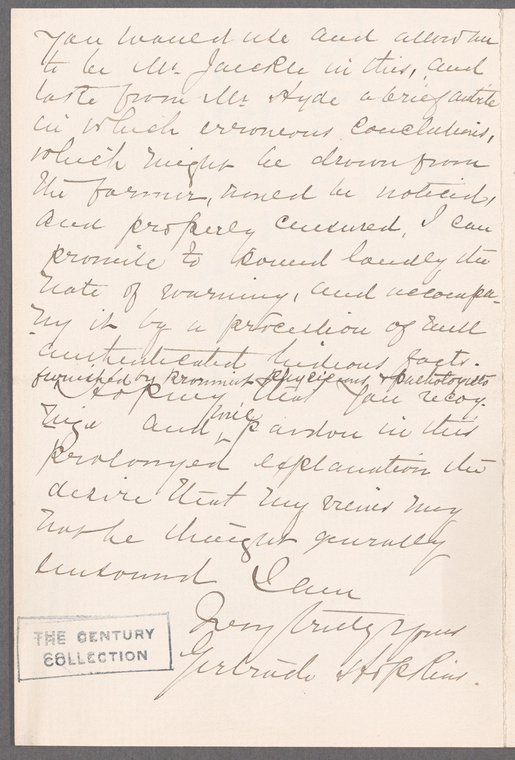 you would use and allow an
to be Mr. Jaeckle in this, and
late from Mr Hyde a brief article
in which erroneous conclusions,
which might be drawn from
the former, would be noticed,
and properly censured, I can
promise to sound loudly the
note of warning, and accompa-
ny it by a procession of well
authenticated hideous facts.
furnished by prominent physicians & pathologists
Hoping that you recog-
nize and, will pardon in this
prolonged explanation the
desire that my views may
not be thought generally
unsound I am
Very truly yours
Gertrude Hopkins.
THE CENTURY
COLLECTION